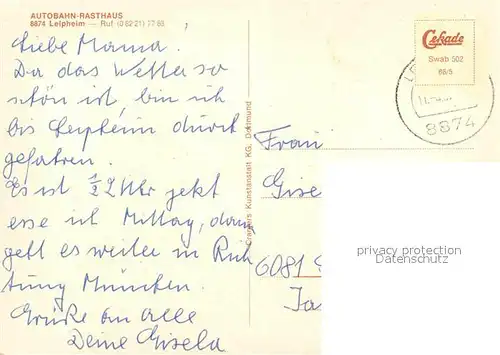 AUTOBAHN-RASTHAUS
8874 Leipheim — Ruf (0 82 21) 77 68
Liebe Mama.
Da das Wetter so
schön ist, bin ich
bis Leipheim durch
gefahren.
Es ist ½ 2 Uhr jetzt
esse ich Mittag, dann
geht es weiter in Rich
tung München.
Grüße an alle
Deine Gisela
Cramers Kunstanstalt KG, Dortmund
Cekade
Swab 502
66/5
8874
Frau
Gise
6081
privacy protection
Datenschutz